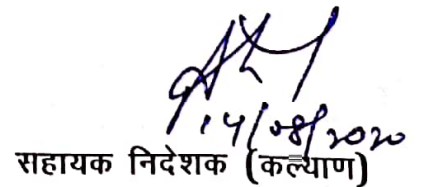 14/08/2020
सहायक निदेशक (कल्याण)